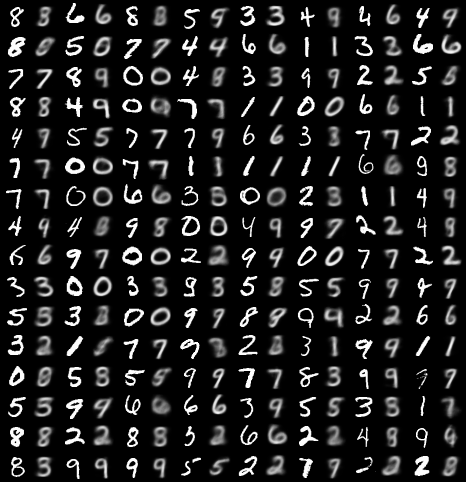 8 3 6 6 8 8 5 9 3 3 4 9 4 6 4 9
8 8 5 0 7 7 4 4 6 6 1 1 3 3 6 6
7 7 8 9 0 0 4 8 3 3 9 9 2 2 5 5
8 8 4 9 0 0 7 7 1 1 0 0 6 6 1 1
4 9 5 5 7 7 7 9 6 6 3 3 7 7 2 2
7 7 0 0 7 7 1 1 1 1 1 1 6 6 9 8
7 7 0 0 6 6 3 3 0 0 2 3 1 1 4 9
4 9 4 8 9 8 0 0 4 9 9 7 2 2 4 9
6 6 9 7 0 0 2 2 9 9 0 0 7 7 2 2
3 3 0 0 3 3 9 8 5 8 5 5 9 9 4 9
5 3 3 3 0 0 9 9 8 8 9 2 2 6 6
3 2 1 7 7 9 3 2 8 3 1 9 9 1 1
0 8 5 3 5 5 9 9 7 7 8 3 9 9 9
5 3 9 9 6 6 6 3 9 5 5 3 3 1 7
8 8 2 2 8 8 3 2 6 6 2 2 4 9 9
8 3 9 9 9 9 5 5 2 2 7 9 2 2 2 8